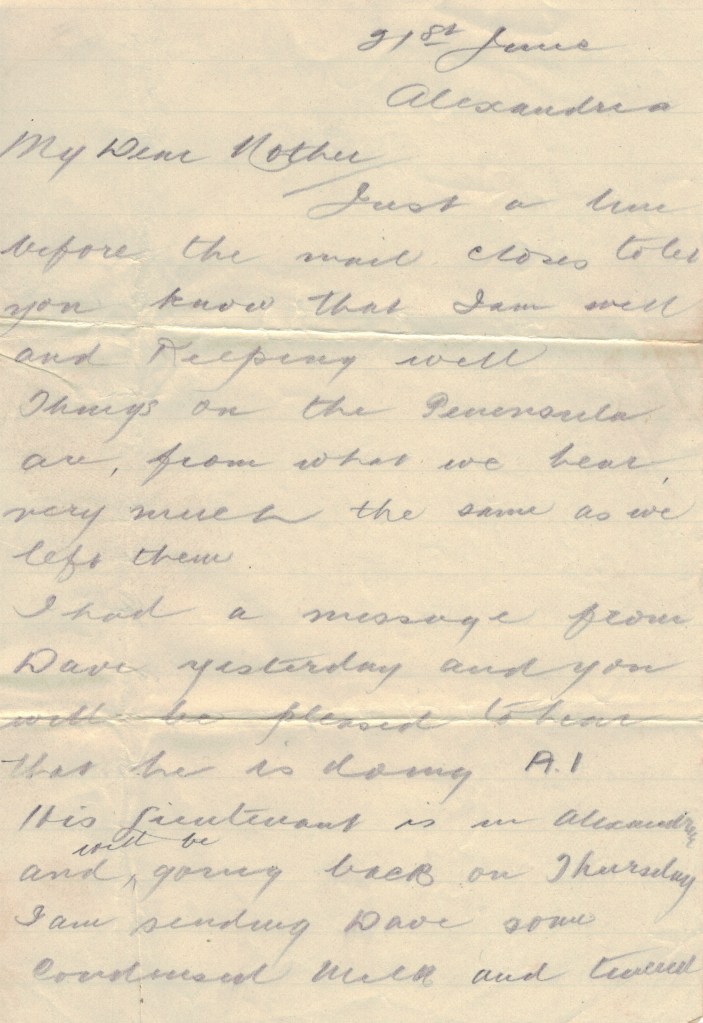 21st June
Alexandria
My Dear Mother
Just a line
before the mail closes to let
you know that I am well
and Keeping well
Things on the Peninsula
are, from what we hear,
very much the same as we
left them
I had a message from
Dave yesterday and you
will be pleased to hear
that he is doing A.1
His Lieutenant is in Alexandria
will be
and, going back on Thursday
I am sending Dave some
Condensed Milk and tinned